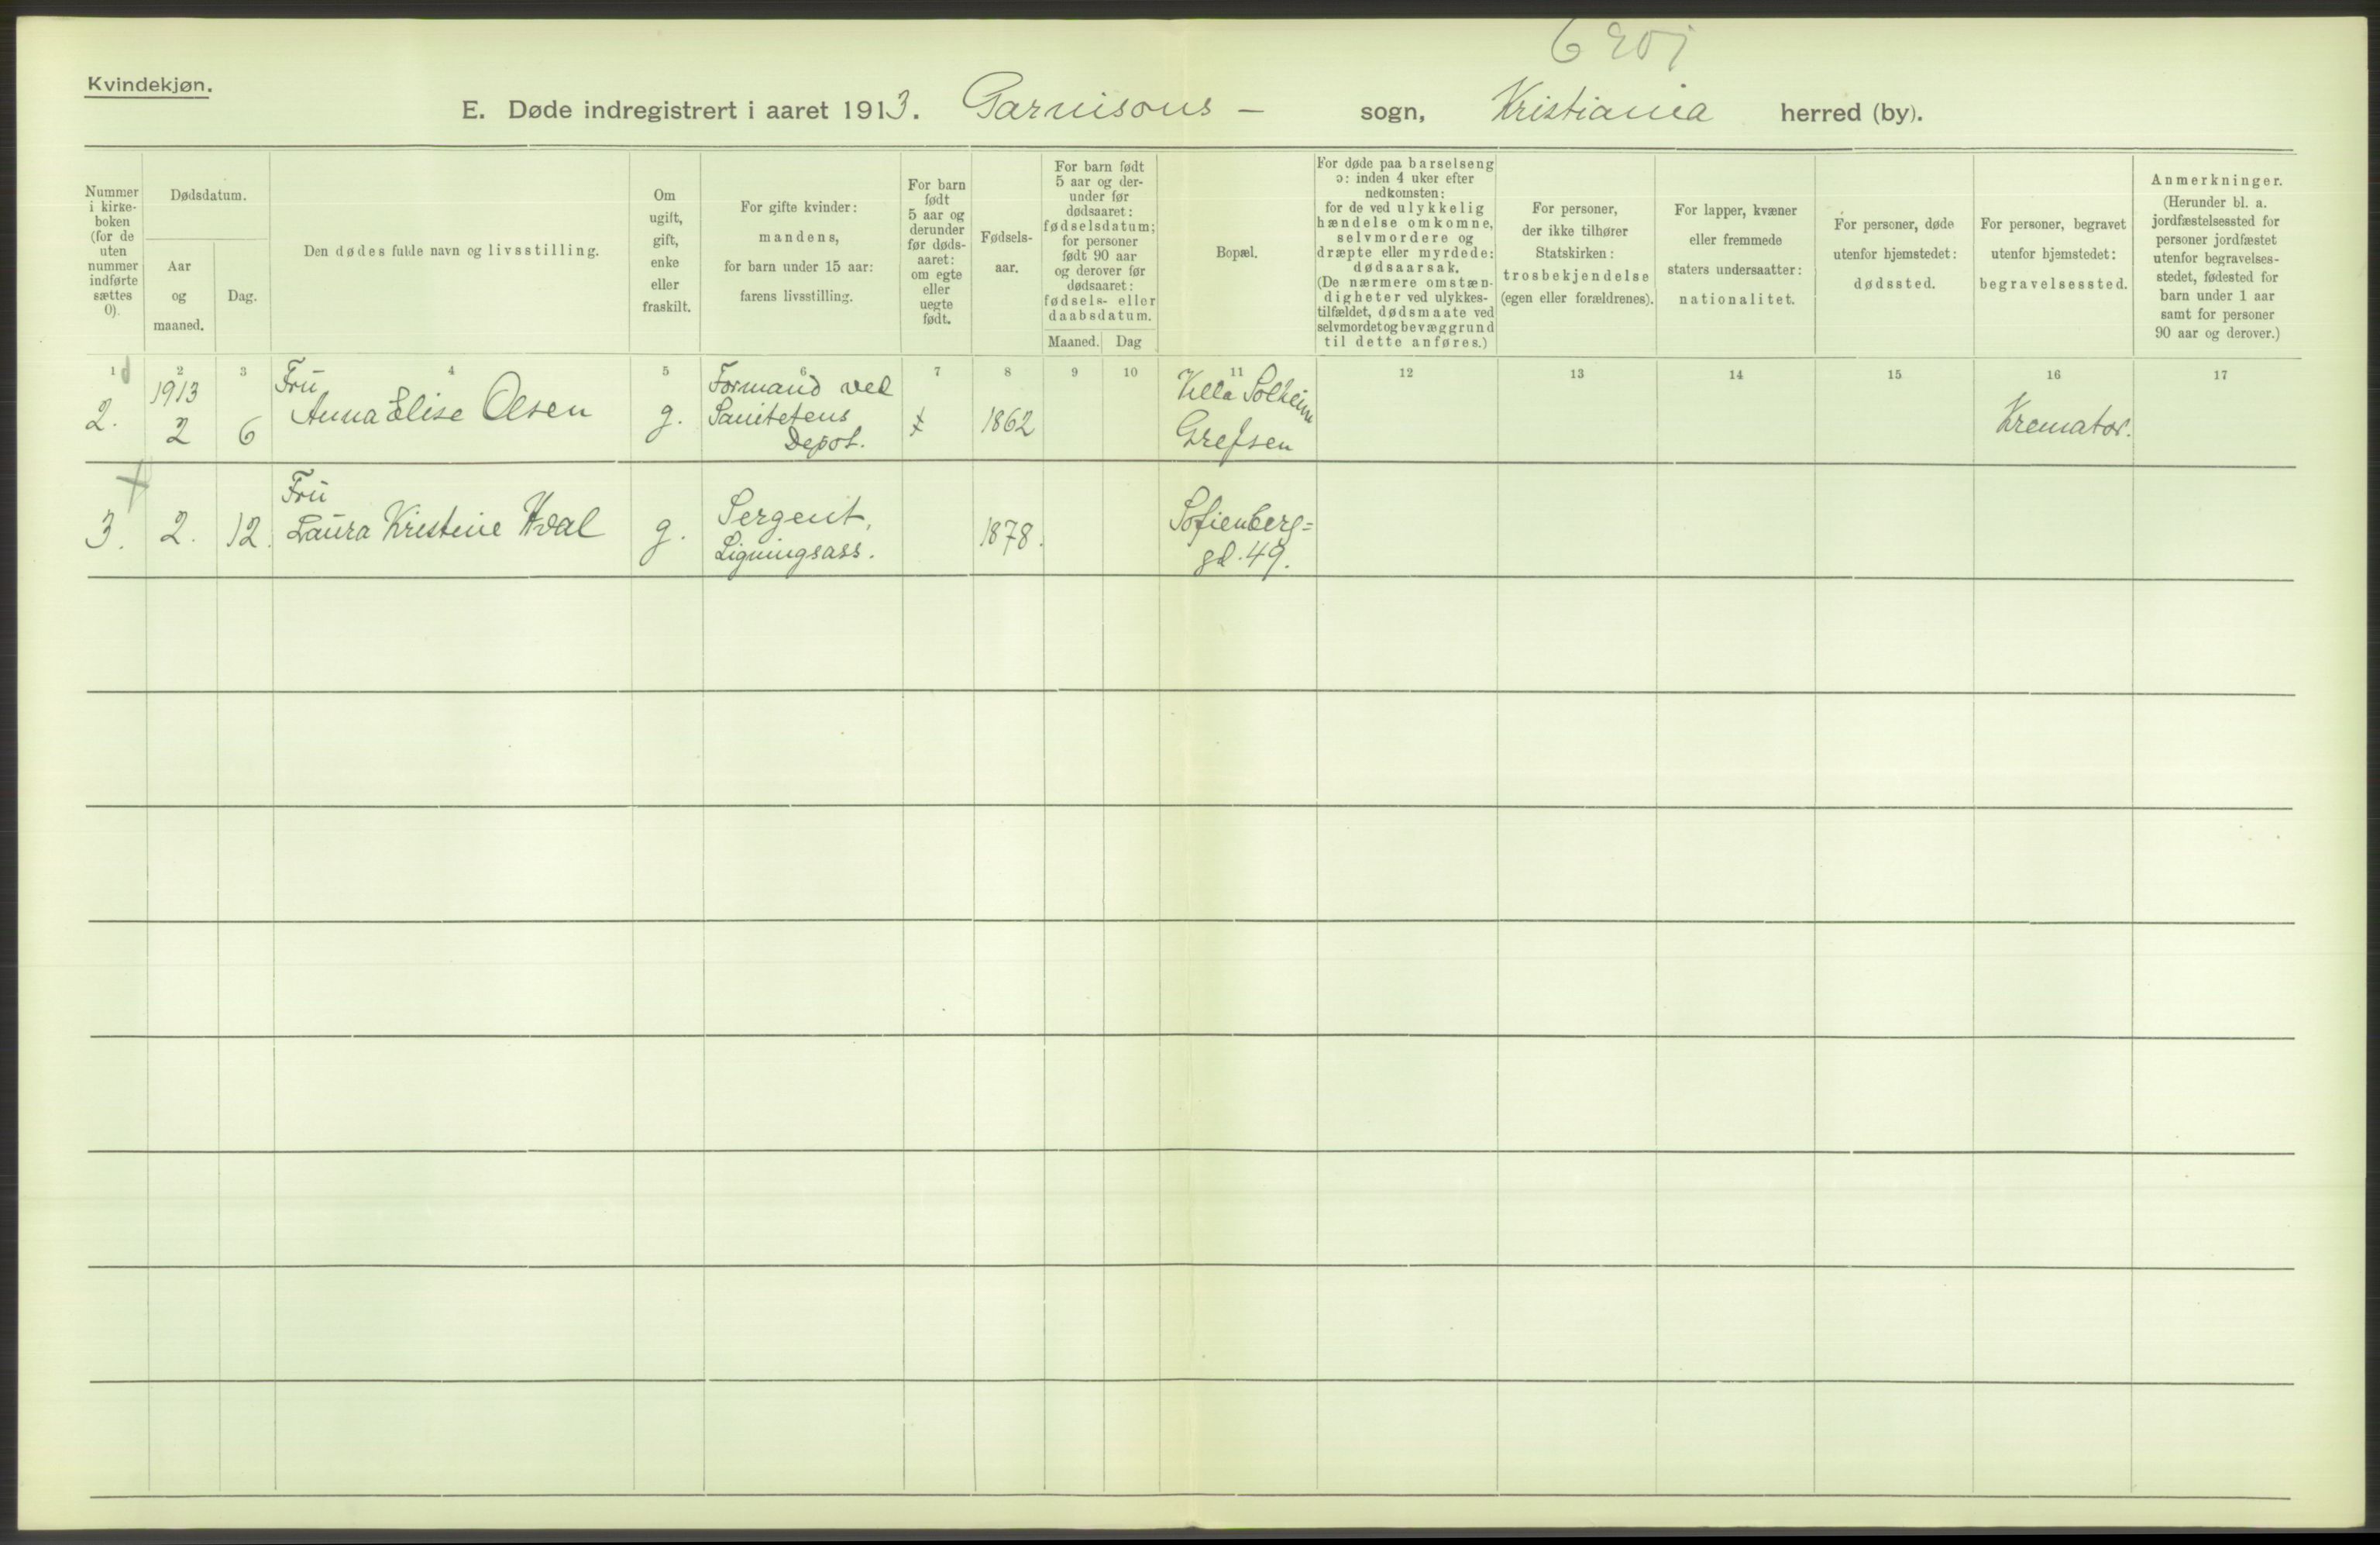 Kvindekjøn.
E. Døde indregistrert i aaret 1913. Garnisons - sogn, Kristiania herred (by).
Nummer
i kirke-
boken
(for de
uten
nummer
indførte
sættes
0).
Dødsdatum.
Aar
og
maaned.
Dag.
Den dødes fulde navn og livsstilling.
Om
ugift,
gift,
enke
eller
fraskilt.
For gifte kvinder:
mandens,
for barn under 15 aar:
farens livsstilling.
For barn
født
5 aar og
derunder
før døds-
aaret:
om egte
eller
uegte
født.
Fødsels-
aar.
For barn født
5 aar og der-
under før
dødsaaret:
fødselsdatum;
for personer
født 90 aar
og derover før
dødsaaret:
fødsels- eller
daabsdatum.
Maaned.
Dag
Bopæl.
For døde paa barselseng
ɔ: inden 4 uker efter
nedkomsten;
for de ved ulykkelig
hændelse omkomne,
selvmordere og
dræpte eller myrdede:
dødsaarsak.
(De nærmere omstæn-
digheter ved ulykkes-
tilfældet, dødsmaate ved
selvmordet og bevæggrund
til dette anføres.)
For personer,
der ikke tilhører
Statskirken:
trosbekjendelse
(egen eller forældrenes).
For lapper, kvæner
eller fremmede
staters undersaatter:
nationalitet.
For personer, døde
utenfor hjemstedet:
dødssted.
For personer, begravet
utenfor hjemstedet:
begravelsessted.
Anmerkninger.
(Herunder bl. a.
jordfæstelsessted for
personer jordfæstet
utenfor begravelses-
stedet, fødested for
barn under 1 aar
samt for personer
90 aar og derover.)
1 2 3 4 5 6 7 8 9 10 11 12 13 14 15 16 17
2.
1913
2
6
Fru
Anna Elise Olsen
g.
Formand ved
Sanitetens
Depot.
1862
Villa Solheim
Grefsen
Kremator.
3.
2.
12.
Fru
Laura Kristine Hval
g.
Sergent,
Ligningsass.
1878.
Sofienberg=
gd. 49.